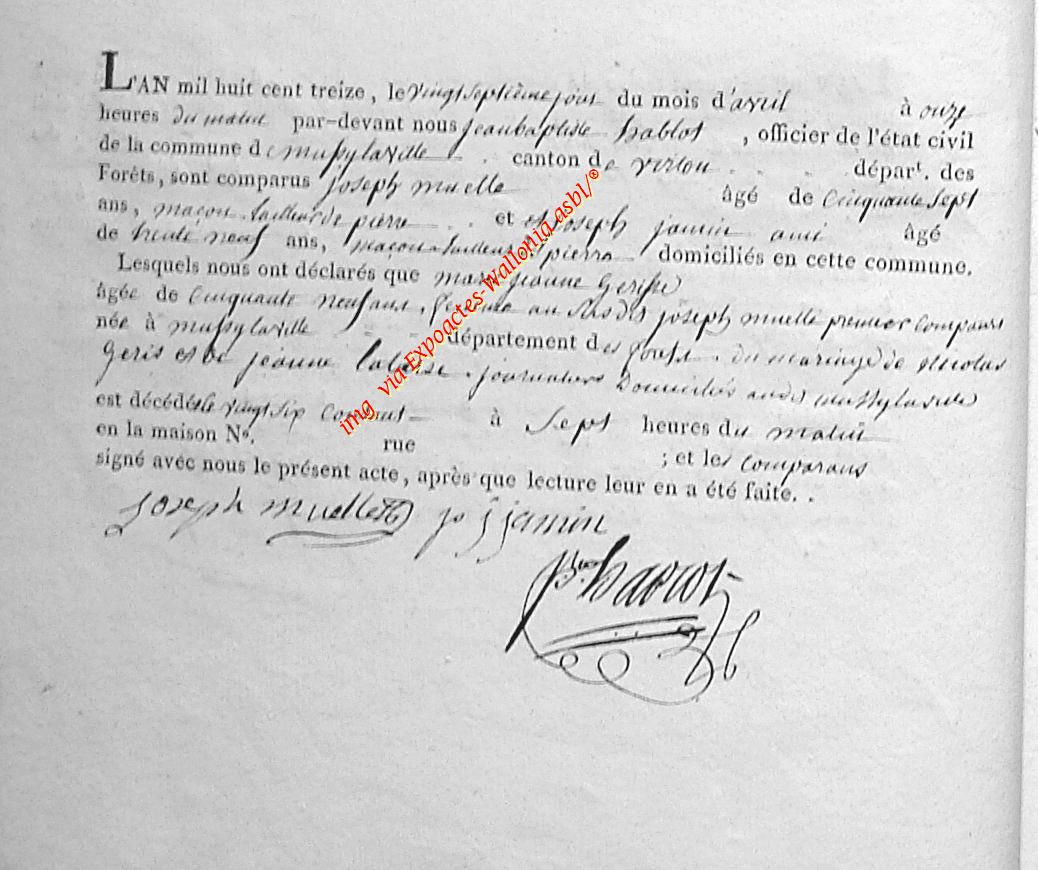 L'AN mil huit cent treize, le vingt septième jour du mois d'avril à onze
heures du matin par-devant nous jean baptiste hablot, officier de l'état civil
de la commune de mussylaville canton de virton départ. des
Forêts, sont comparus joseph muelle âgé de cinquante sept
ans, maçon tailleur de pierre et joseph jamin ami âgé
de trente neuf ans, maçon tailleur pierre domiciliés en cette commune.
Lesquels nous ont déclarés que marie jeanne
âgée de cinquante neuf ans, femme au susdit joseph muelle premier comparant
née à mussylaville département des forets. du mariage de nicolas
geris et de jeanne journaliers domiciliés mussylaville
est décédé le vingt six courant à sept heures du matin
en la maison N°. rue ; et les comparans
signé avec nous le présent acte, après que lecture leur en a été faite. .
joseph muelle j jamin
hablot
img via Expoactes-Wallonia asbl/®